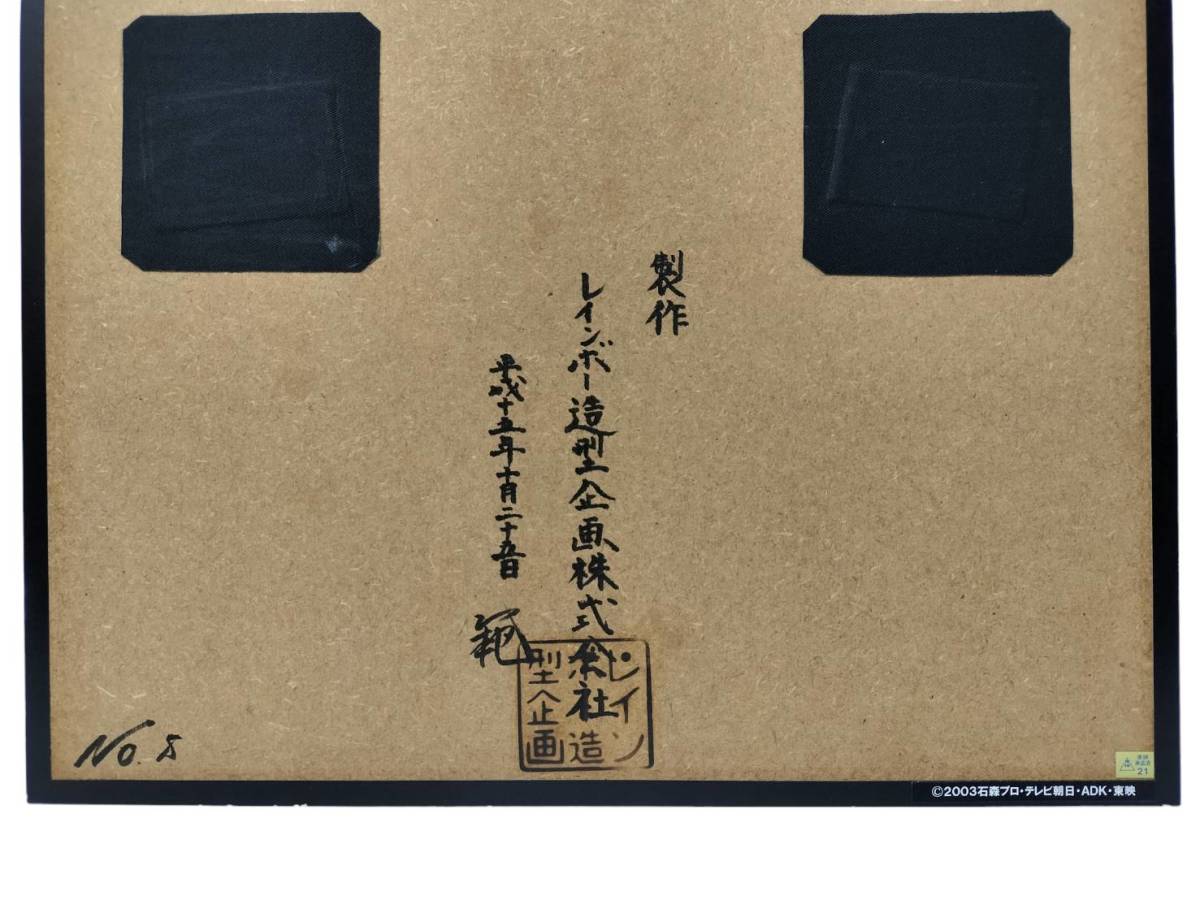 製作
レインボー造型企画株式会社
平成十五年十月二十五日
範
レイン
造
型企画
No. 8
21
©2003石森プロ・テレビ朝日・ADK・東映